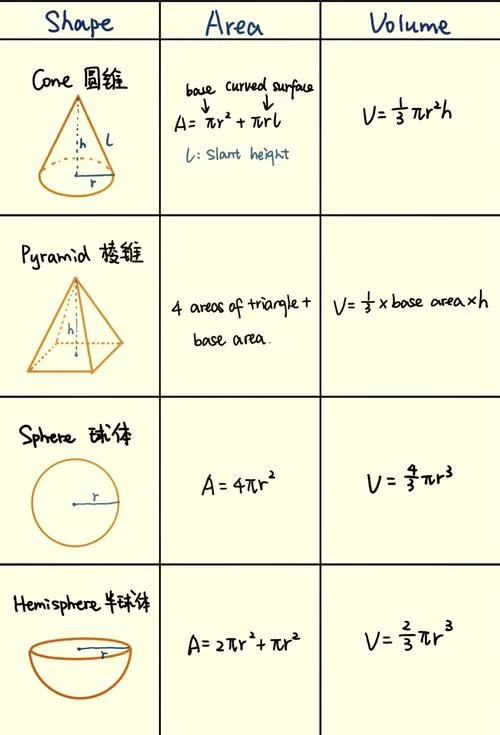 Shape Area Volume
Cone 圆锥
h
l
r
base curved surface
A = πr² + πrl
l: Slant height
V = 1/3 πr²h
Pyramid 棱锥
h
4 areas of triangle +
base area.
V = 1/3 × base area × h
Sphere 球体
r
A = 4πr²
V = 4/3 πr³
Hemisphere 半球体
r
A = 2πr² + πr²
V = 2/3 πr³